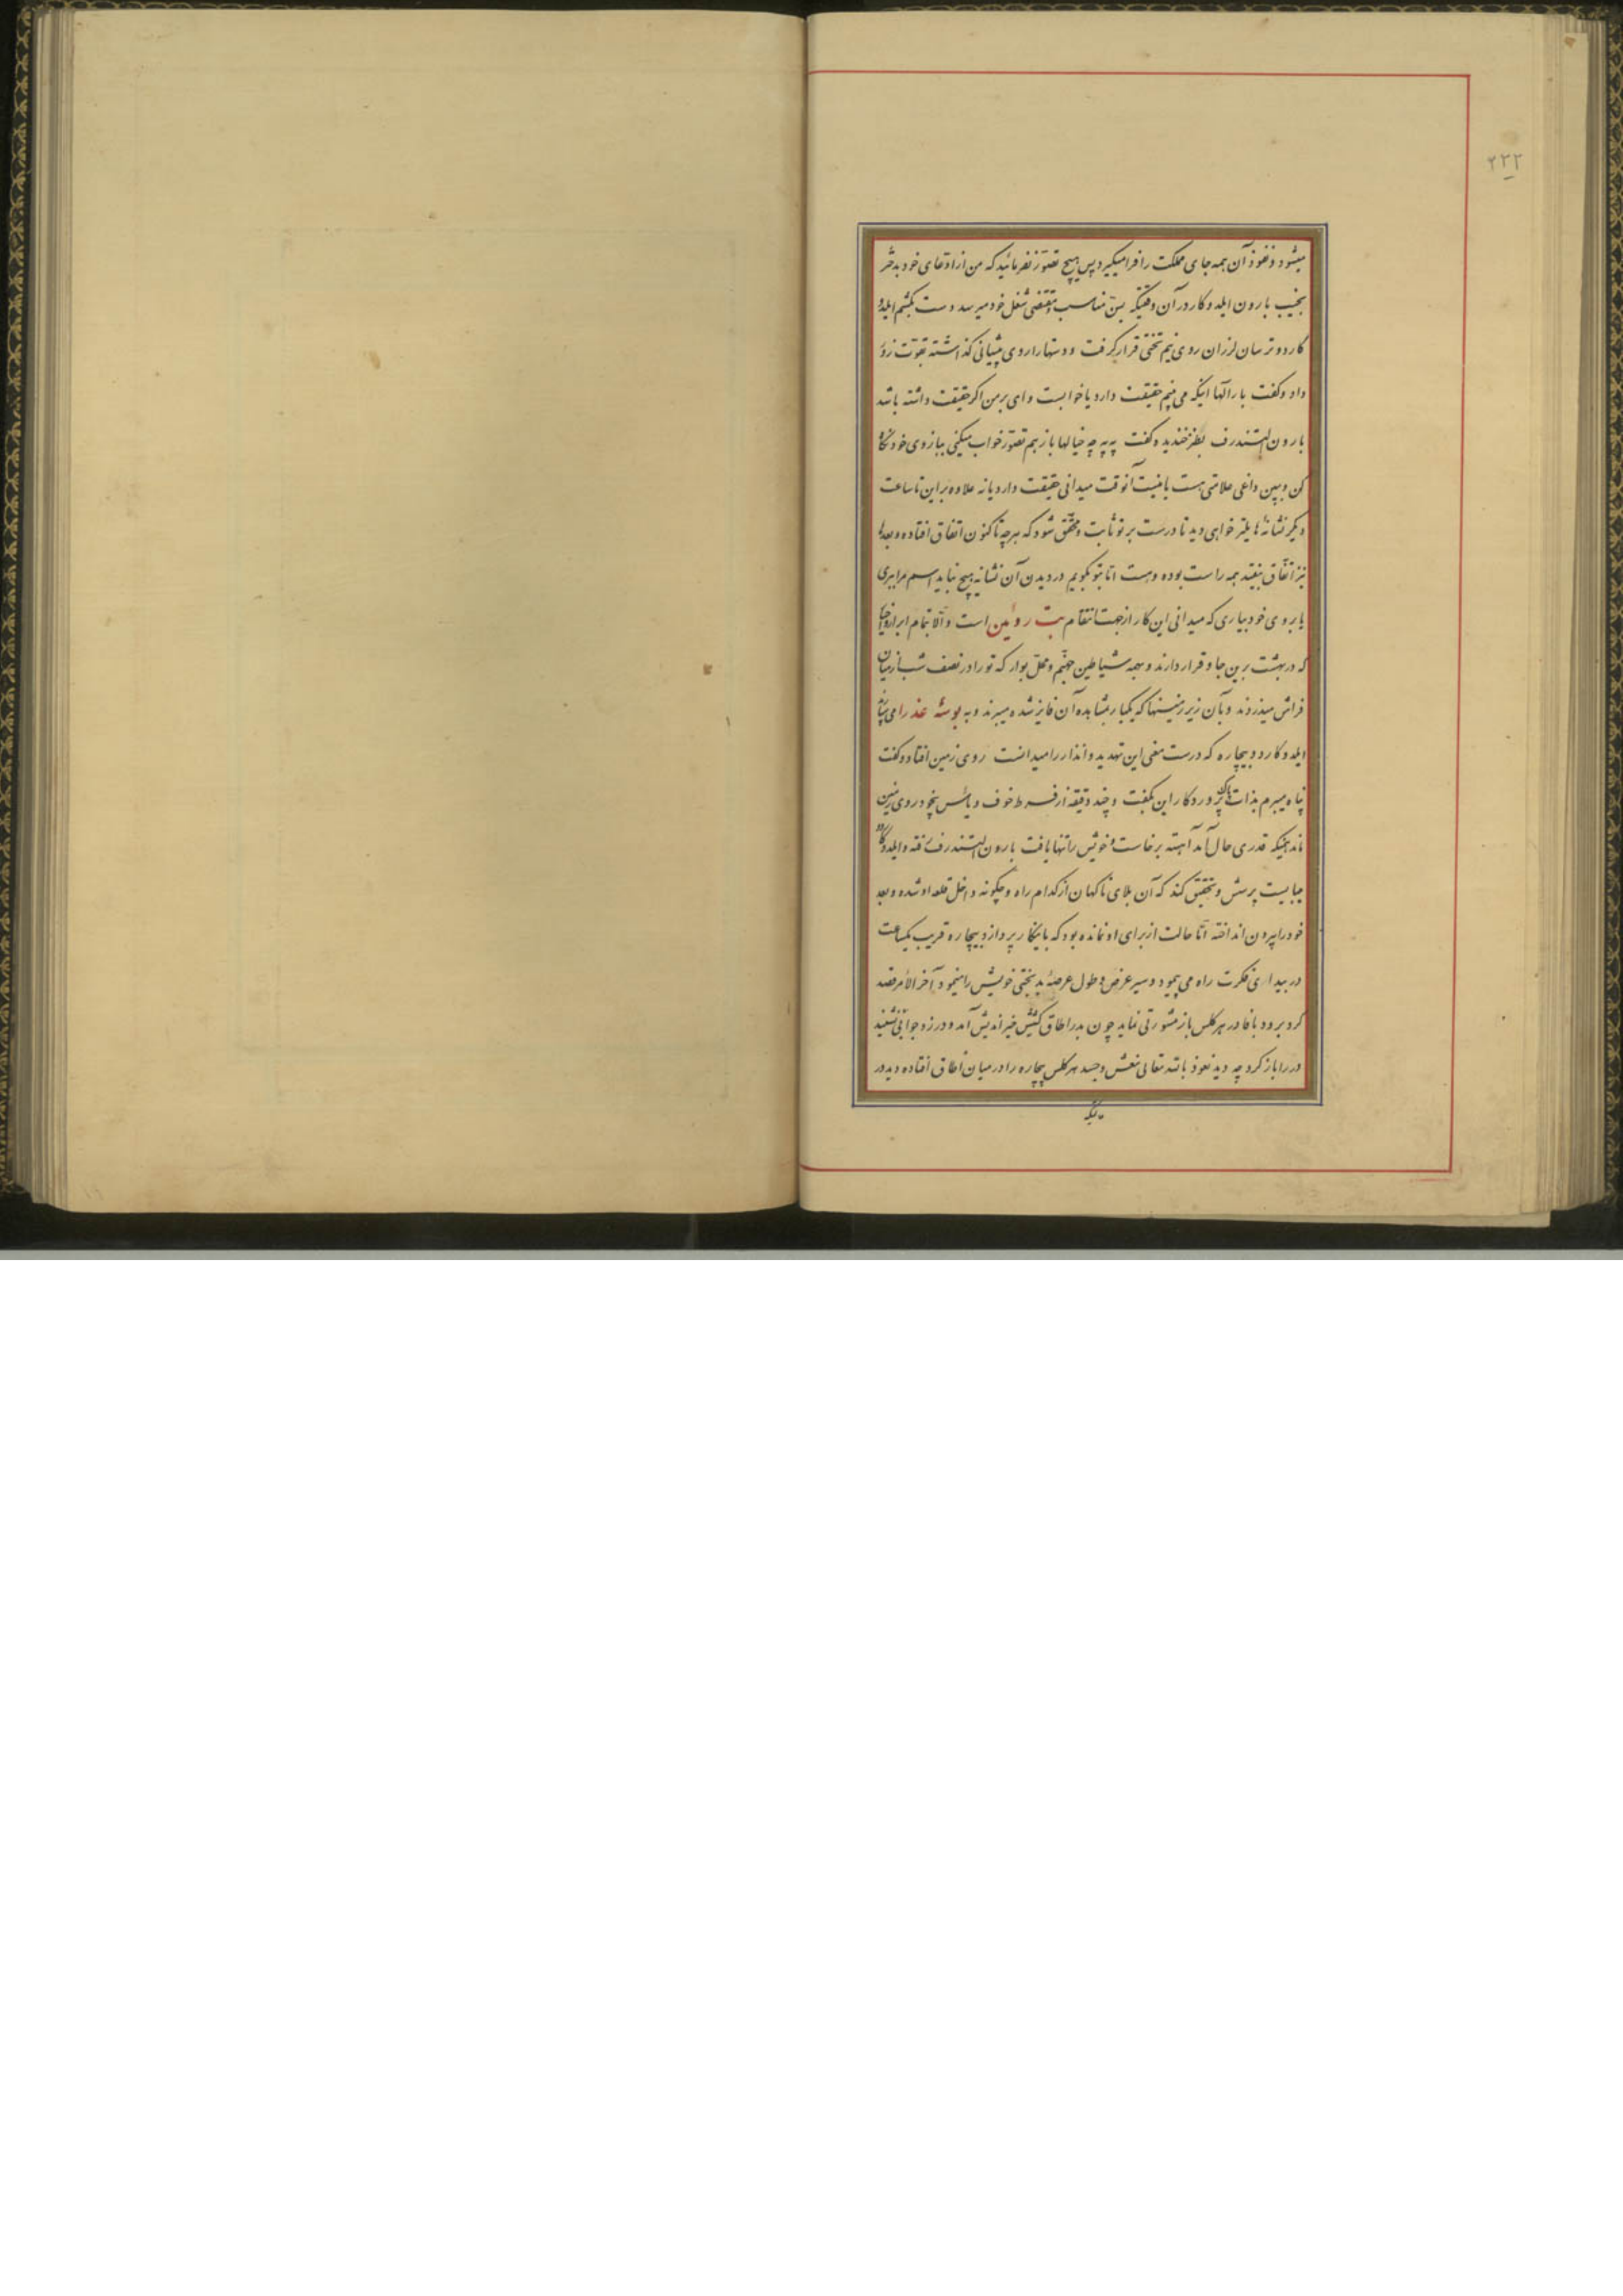 ۲۲۲
میشود و نفوذ آن همه جای مملکت را فرا میگیرد پس هیچ تصوّر نفرمائید که من از ادّعای خود بدختر
نجیب بارون ایلدوکارد در آن وقتیکه بسنّ مناسب مقتضی شغل خود میرسد دست بکشم ایلدو
کارد و ترسان لرزان روی نیم تختی قرار گرفت و دستها را روی پیشانی گذاشته بقوّت زور
داد و گفت بارالها اینکه می بینم حقیقت دارد یا خوابست وای بر من اگر حقیقت داشته باشد
بارون الستندرف بطنز خندید و گفت په په چه خیالها باز هم تصوّر خواب میکنی ببازوی خود نگاه
کن و ببین داغی علامتی هست یا نیست آنوقت میدانی حقیقت دارد یا نه علاوه بر این تا ساعت
دیگر نشانه‌ها یلتر خواهی دید تا درست بر تو ثابت و محقّق شود که هر چه تا کنون اتفاق افتاده و بعدها
نیز اتّفاق بیفتد همه راست بوده و هست امّا بتو بگویم در دیدن آن نشانه هیچ نباید اسم مرا ببری
یا بروی خود بیاری که میدانی این کار از جهت انتقام بت روئین است و الّا بتمام ابرار و اخیار
که در بهشت برین جا و قرار دارند و بهمه شیاطین جهنّم و محلّ بوار که تو را در نصف شب از میان
فراش میدزدند و بآن زیر زمینها که یکبار بمشاهده آن فایز شده میبرند و به بوسهٔ عذرا می
ایلدوکارد بیچاره که درست معنی این تهدید و انذار را میدانست روی زمین افتاد و گفت
پناه میبرم بذات پاک پروردگار این بگفت و چند دقیقه از فرط خوف و یأس بیخود روی زمین
ماند همینکه قدری حال آمد آهسته برخاست و خویش را تنها یافت بارون الستندرف رفته و ایلدوکارد
میبایست پرسش و تحقیق کند که آن بلای ناگهان از کدام راه و چگونه داخل قلعه او شده و بعد
خود را بیرون انداخته امّا حالت از برای او نمانده بود که باینکار پردازد بیچاره قریب یکساعت
در بیداری فکرت راه می پیمود و سیر عرض و طول عرصهٔ بدبختی خویش را مینمود آخر الأمر قصد
کرد برود با فادر هرکلس باز مشورتی نماید چون بدر اطاق کشیش خیراندیش آمد و در زد جوابی نشنید
در را باز کرد چه دید نعوذ بالله تعالی نعش و جسد هرکلس بیچاره را در میان اطاق افتاده دید در